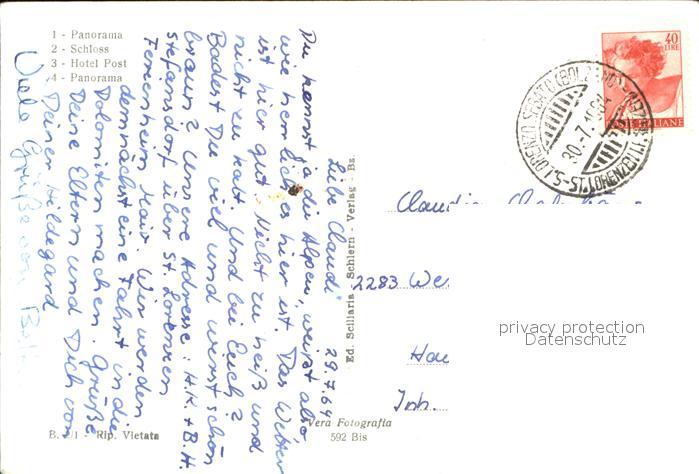 1 - Panorama
2 - Schloss
3 - Hotel Post
4 - Panorama
Liebe Claudi 29.7.64
Du kennst ja die Alpen, weißt also
wie herrlich es hier ist. Das Wetter
ist hier gut. Nicht zu heiß und
nicht zu kalt. Und bei Euch?
Badest Du viel und wirst schön
braun? Unsere Adresse: H.K. + B.H.
Stefansdorf über St. Lorenzen
Ferienheim Mair. Wir werden
demnächst eine Fahrt in die
Dolomiten machen. Grüße
Deine Eltern und Dich von
Deiner Hildegard
Viele Grüße von
B. 1 - Rip. Vietata
Ed. Sciliaria - Schlern - Verlag - Bz.
Vera Fotografia
592 Bis
40
LIRE
ITALIANE
S. LORENZO SEBATO (BOLZANO)
30.-7.1964
ST. LORENZEN
Claudia
2283 We
Hau
Inh.
privacy protection
Datenschutz